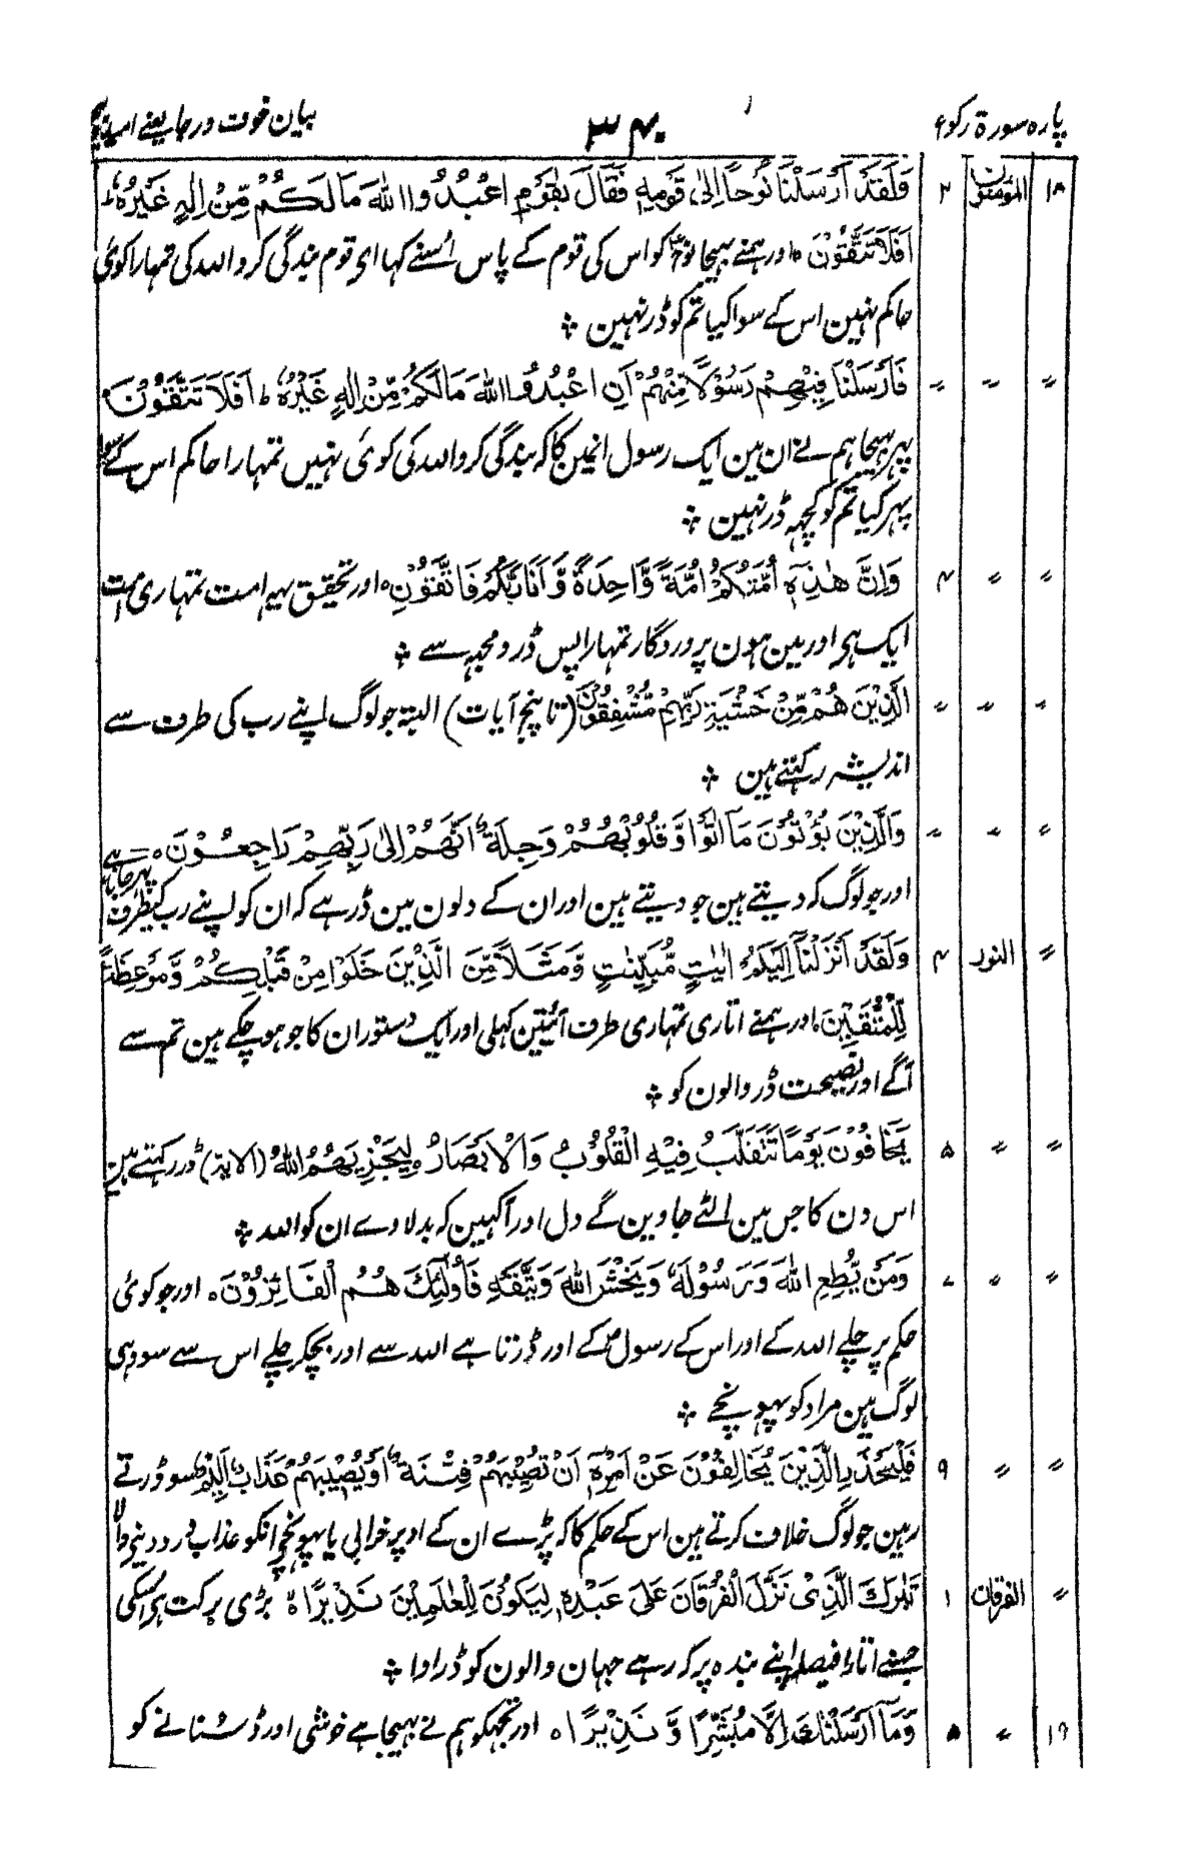 پارہ سورۃ رکوع ۳۴ بیان خوف ورجا یعنے امید
۱۸ المؤمنون ۲ وَلَقَدْ اَرْسَلْنَا نُوْحًا اِلٰی قَوْمِهٖ فَقَالَ یٰقَوْمِ اعْبُدُوا اللّٰهَ مَا لَكُمْ مِّنْ اِلٰهٍ غَیْرُهٗ ط
اَفَلَا تَتَّقُوْنَ ہ اور ہمنے بہیجا نوح کو اس کی قوم کے پاس اُسنے کہا ای قوم بندگی کرو اللہ کی تمہارا کوئی
حاکم نہین اس کے سوا کیا تم کو ڈر نہین ؞
〃 〃 〃 فَاَرْسَلْنَا فِیْهِمْ رَسُوْلًا مِّنْهُمْ اَنِ اعْبُدُوا اللّٰهَ مَا لَكُمْ مِّنْ اِلٰهٍ غَیْرُهٗ ط اَفَلَا تَتَّقُوْنَ ہ
پہر بہیجا ہم نے ان مین ایک رسول انمین کا کہ بندگی کرو اللہ کی کوئی نہیں تمہارا حاکم اس کے سوا
پہر کیا تم کو کچہہ ڈر نہین ؞
〃 〃 ۴ وَاِنَّ هٰذِهٖٓ اُمَّتُكُمْ اُمَّةً وَّاحِدَةً وَّاَنَا رَبُّكُمْ فَاتَّقُوْنِ ہ اور تحقیق یہہ امت تمہاری امت
ایک ہی اور مین ہون پروردگار تمہارا پس ڈرو مجہہ سے ؞
〃 〃 〃 الَّذِیْنَ هُمْ مِّنْ خَشْیَةِ رَبِّهِمْ مُّشْفِقُوْنَ (تا پنج آیات) البتہ جو لوگ اپنے رب کی طرف سے
اندیشہ رکہتے ہین ؞
〃 〃 〃 وَالَّذِیْنَ یُؤْتُوْنَ مَآ اٰتَوْا وَّقُلُوْبُهُمْ وَجِلَةٌ اَنَّهُمْ اِلٰی رَبِّهِمْ رٰجِعُوْنَ ہ
اور جو لوگ کہ دیتے ہین جو دیتے ہین اور ان کے دلون مین ڈر ہے کہ ان کو اپنے رب کیطرف پہر جانا ہے
〃 النور ۴ وَلَقَدْ اَنْزَلْنَآ اِلَیْكُمْ اٰیٰتٍ مُّبَیِّنٰتٍ وَّمَثَلًا مِّنَ الَّذِیْنَ خَلَوْا مِنْ قَبْلِكُمْ وَمَوْعِظَةً
لِّلْمُتَّقِیْنَ ہ اور ہمنے اتاری تمہاری طرف آئتین کہلی اور ایک دستور ان کا جو ہو چکے ہین تم سے
آگے اور نصیحت ڈر والون کو ؞
〃 〃 ۵ یَخَافُوْنَ یَوْمًا تَتَقَلَّبُ فِیْهِ الْقُلُوْبُ وَالْاَبْصَارُ ہ لِیَجْزِیَهُمُ اللّٰهُ (الایۃ) ڈر رکہتے ہین
اس دن کا جس مین الٹے جاوین گے دل اور آکہین کہ بدلا دے ان کو اللہ ؞
〃 〃 ۷ وَمَنْ یُّطِعِ اللّٰهَ وَرَسُوْلَهٗ وَیَخْشَ اللّٰهَ وَیَتَّقْهِ فَاُولٰٓئِكَ هُمُ الْفَآئِزُوْنَ ہ اور جو کوئی
حکم پر چلے اللہ کے اور اس کے رسول کے اور ڈرتا ہے اللہ سے اور بچکر چلے اس سے سو وہی
لوگ ہین مراد کو پہونچے ؞
〃 〃 ۹ فَلْیَحْذَرِ الَّذِیْنَ یُخَالِفُوْنَ عَنْ اَمْرِهٖٓ اَنْ تُصِیْبَهُمْ فِتْنَةٌ اَوْ یُصِیْبَهُمْ عَذَابٌ اَلِیْمٌ سو ڈرتے
رہین جو لوگ خلاف کرتے ہین اس کے حکم کا کہ پڑے ان کے اوپر خرابی یا پہونچے انکو عذاب درد دینے والا
〃 الفرقان ۱ تَبٰرَكَ الَّذِیْ نَزَّلَ الْفُرْقَانَ عَلٰی عَبْدِهٖ لِیَكُوْنَ لِلْعٰلَمِیْنَ نَذِیْرًا ہ بڑی برکت ہی اسکی
جسنے اتارا فیصلہ اپنے بندہ پر کہ رہے جہان والون کو ڈراوا ؞
۱۹ 〃 ۵ وَمَآ اَرْسَلْنٰكَ اِلَّا مُبَشِّرًا وَّنَذِیْرًا ہ اور تجہکو ہم نے بہیجا ہے خوشی اور ڈر سنانے کو